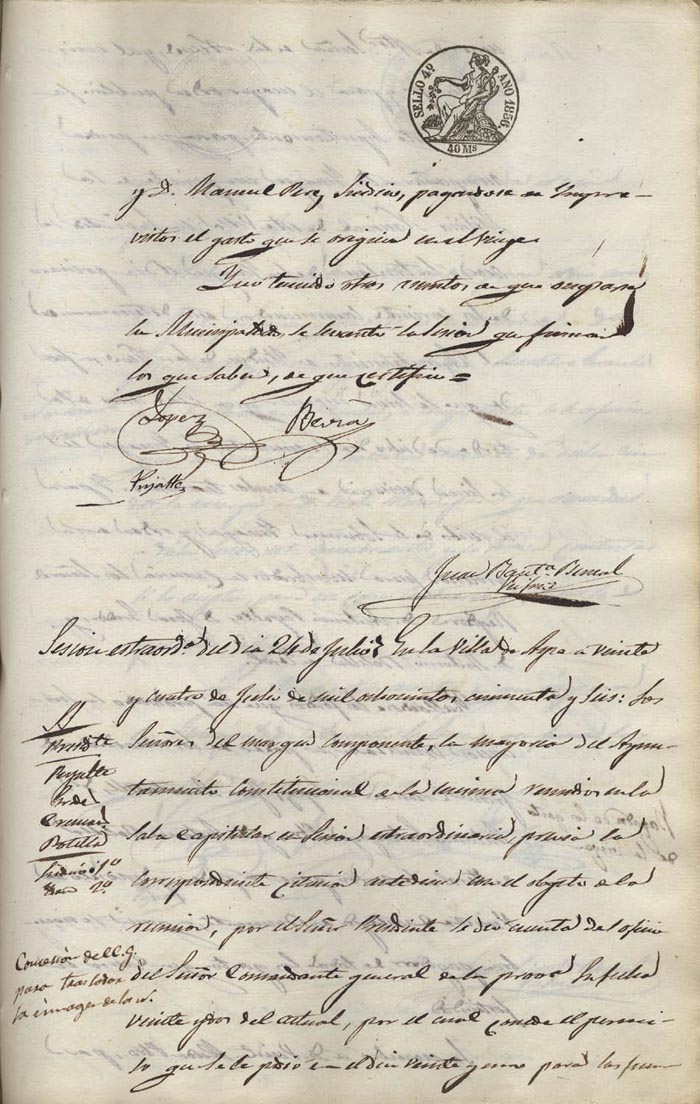 SELLO 4º AÑO 1856.
40 Ms
y D. Manuel Sindico, pagandose de Impre-
vistos el gasto que se origine en el viage.
Y no teniendo otros asuntos de que ocuparse
la Municipalidad, se levantó la sesion que firman
los que saben, de que certifico =
Lopez
Pujalte
Juan Bauta
Sesion extraorda del dia 24 de Julio. En la Villa de Aspe a veinte
y cuatro de Julio de mil ochocientos cincuenta y seis: Los
Señores del margen componentes, la mayoria del Ayun-
tamiento Constitucional de la misma reunidos en la
Sala Capitular en sesion extraordinaria, previa la
correspondiente citacion antediem con el objeto de la
reunion, por el Señor Presidente se dio cuenta del oficio
del Señor Comandante general de la prova su fecha
veinte y dos del actual, por el cual concede el permi-
so que se le pidió en el dia veinte y uno para las fun-
SS.
Presidte
Pujalte
Botella
Sindico 1º
2º
Concesion del C. G.
para trasladar
la imagen de la